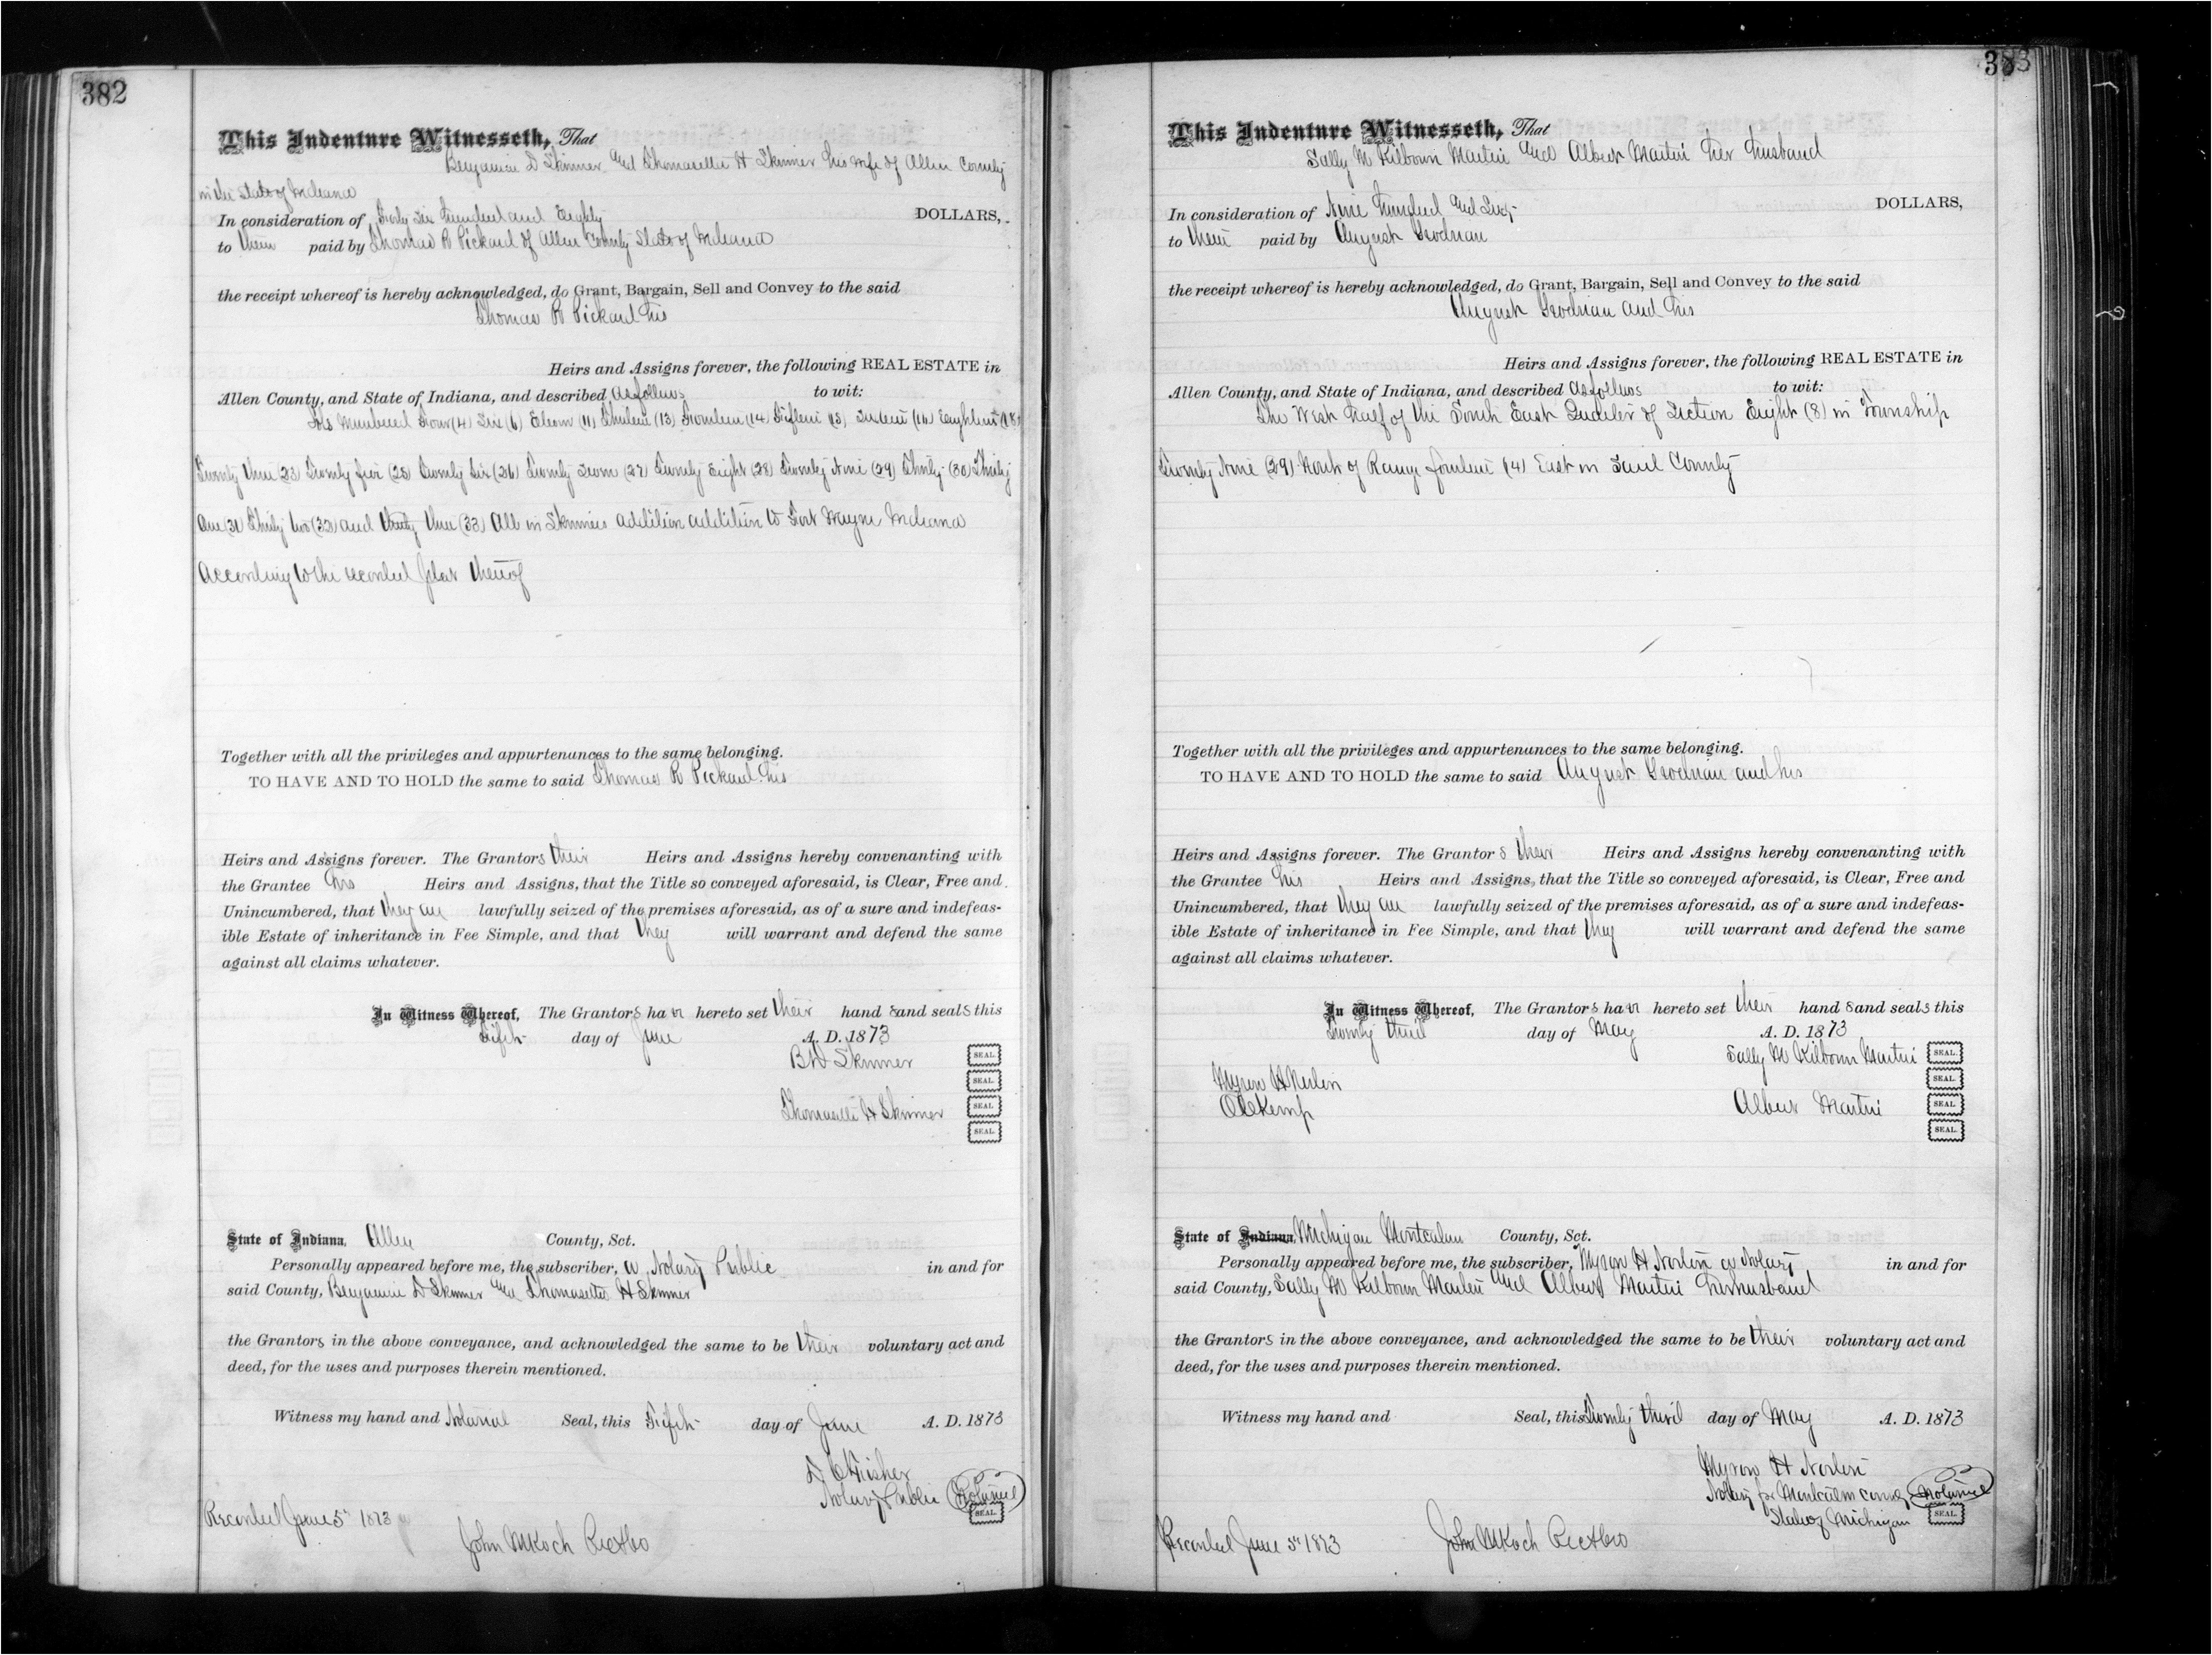 382
This Indenture Witnesseth, That
Benjamin D Skinner and Thomasetta H Skinner his wife of Allen County
in the State of Indiana
In consideration of Forty Six Hundred and Eighty DOLLARS,
to them paid by Thomas R Pickard of Allen County State of Indiana
the receipt whereof is hereby acknowledged, do Grant, Bargain, Sell and Convey to the said
Thomas R Pickard his
Heirs and Assigns forever, the following REAL ESTATE in
Allen County, and State of Indiana, and described as follows to wit:
Lots Numbered Four (4) Six (6) Eleven (11) Thirteen (13) Fourteen (14) Fifteen (15) Sixteen (16) Eighteen (18)
Twenty three (23) Twenty five (25) Twenty Six (26) Twenty Seven (27) Twenty Eight (28) Twenty Nine (29) Thirty (30) Thirty
One (31) Thirty two (32) and thirty three (33) All in Skinners addition addition to Fort Wayne Indiana
According to the recorded plat thereof
Together with all the privileges and appurtenances to the same belonging.
TO HAVE AND TO HOLD the same to said Thomas R Pickard his
Heirs and Assigns forever. The Grantors their Heirs and Assigns hereby convenanting with
the Grantee his Heirs and Assigns, that the Title so conveyed aforesaid, is Clear, Free and
Unincumbered, that they are lawfully seized of the premises aforesaid, as of a sure and indefeas-
ible Estate of inheritance in Fee Simple, and that they will warrant and defend the same
against all claims whatever.
In Witness Whereof, The Grantors have hereto set their hands and seals this
Fifth day of June A. D. 1873
B D Skinner SEAL.
SEAL.
Thomasetta H Skinner SEAL.
SEAL.
State of Indiana, Allen County, Sct.
Personally appeared before me, the subscriber, a Notary Public in and for
said County, Benjamin D Skinner and Thomasetta H Skinner
the Grantors in the above conveyance, and acknowledged the same to be their voluntary act and
deed, for the uses and purposes therein mentioned.
Witness my hand and Notarial Seal, this Fifth day of June A. D. 1873
D C Fisher
Notary Public Notarial
SEAL.
Recorded June 5th 1873
John M Koch Rec
383
This Indenture Witnesseth, That
Sally M Kilbourn Martin and Albert Martin her husband
In consideration of Nine Hundred and Sixty DOLLARS,
to them paid by August Grodrian
the receipt whereof is hereby acknowledged, do Grant, Bargain, Sell and Convey to the said
August Grodrian and his
Heirs and Assigns forever, the following REAL ESTATE in
Allen County, and State of Indiana, and described as follows to wit:
The West half of the South East Quarter of Section Eight (8) in Township
Twenty Nine (29) North of Range fourteen (14) East in Said County
Together with all the privileges and appurtenances to the same belonging.
TO HAVE AND TO HOLD the same to said August Grodrian and his
Heirs and Assigns forever. The Grantors their Heirs and Assigns hereby convenanting with
the Grantee his Heirs and Assigns, that the Title so conveyed aforesaid, is Clear, Free and
Unincumbered, that they are lawfully seized of the premises aforesaid, as of a sure and indefeas-
ible Estate of inheritance in Fee Simple, and that they will warrant and defend the same
against all claims whatever.
In Witness Whereof, The Grantors have hereto set their hands and seals this
Twenty third day of May A. D. 1873
Sally M Kilbourn Martin SEAL.
Myron H Norton SEAL.
O C Kemp Albert Martin SEAL.
SEAL.
State of Indiana, Michigan Montcalm County, Sct.
Personally appeared before me, the subscriber, Myron H Norton a Notary in and for
said County, Sally M Kilbourn Martin and Albert Martin her husband
the Grantors in the above conveyance, and acknowledged the same to be their voluntary act and
deed, for the uses and purposes therein mentioned.
Witness my hand and Seal, this Twenty third day of May A. D. 1873
Myron H Norton
Notary for Montcalm County Notarial
State of Michigan SEAL.
Recorded June 5th 1873 John M Koch Rec